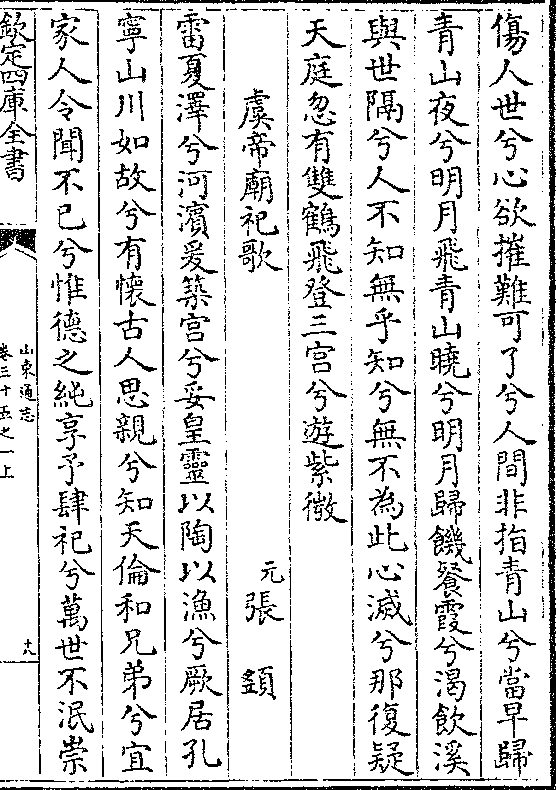 傷人世兮心欲摧難可了兮人間非指青山兮當早歸
青山夜兮明月飛青山曉兮明月歸饑餐霞兮渴飲溪
與世隔兮人不知無乎知兮無不為此心滅兮那復疑
天庭忽有雙鶴飛登三宫兮遊紫微
虞帝廟祀歌 元張䪻
雷夏澤兮河濱爰築宫兮妥皇靈以陶以漁兮厥居孔
寧山川如故兮有懷古人思親兮知天倫和兄弟兮宜
家人令聞不已兮惟德之純享予肆祀兮萬世不泯崇
欽定四庫全書
山東通志
卷三十五之一上
十八